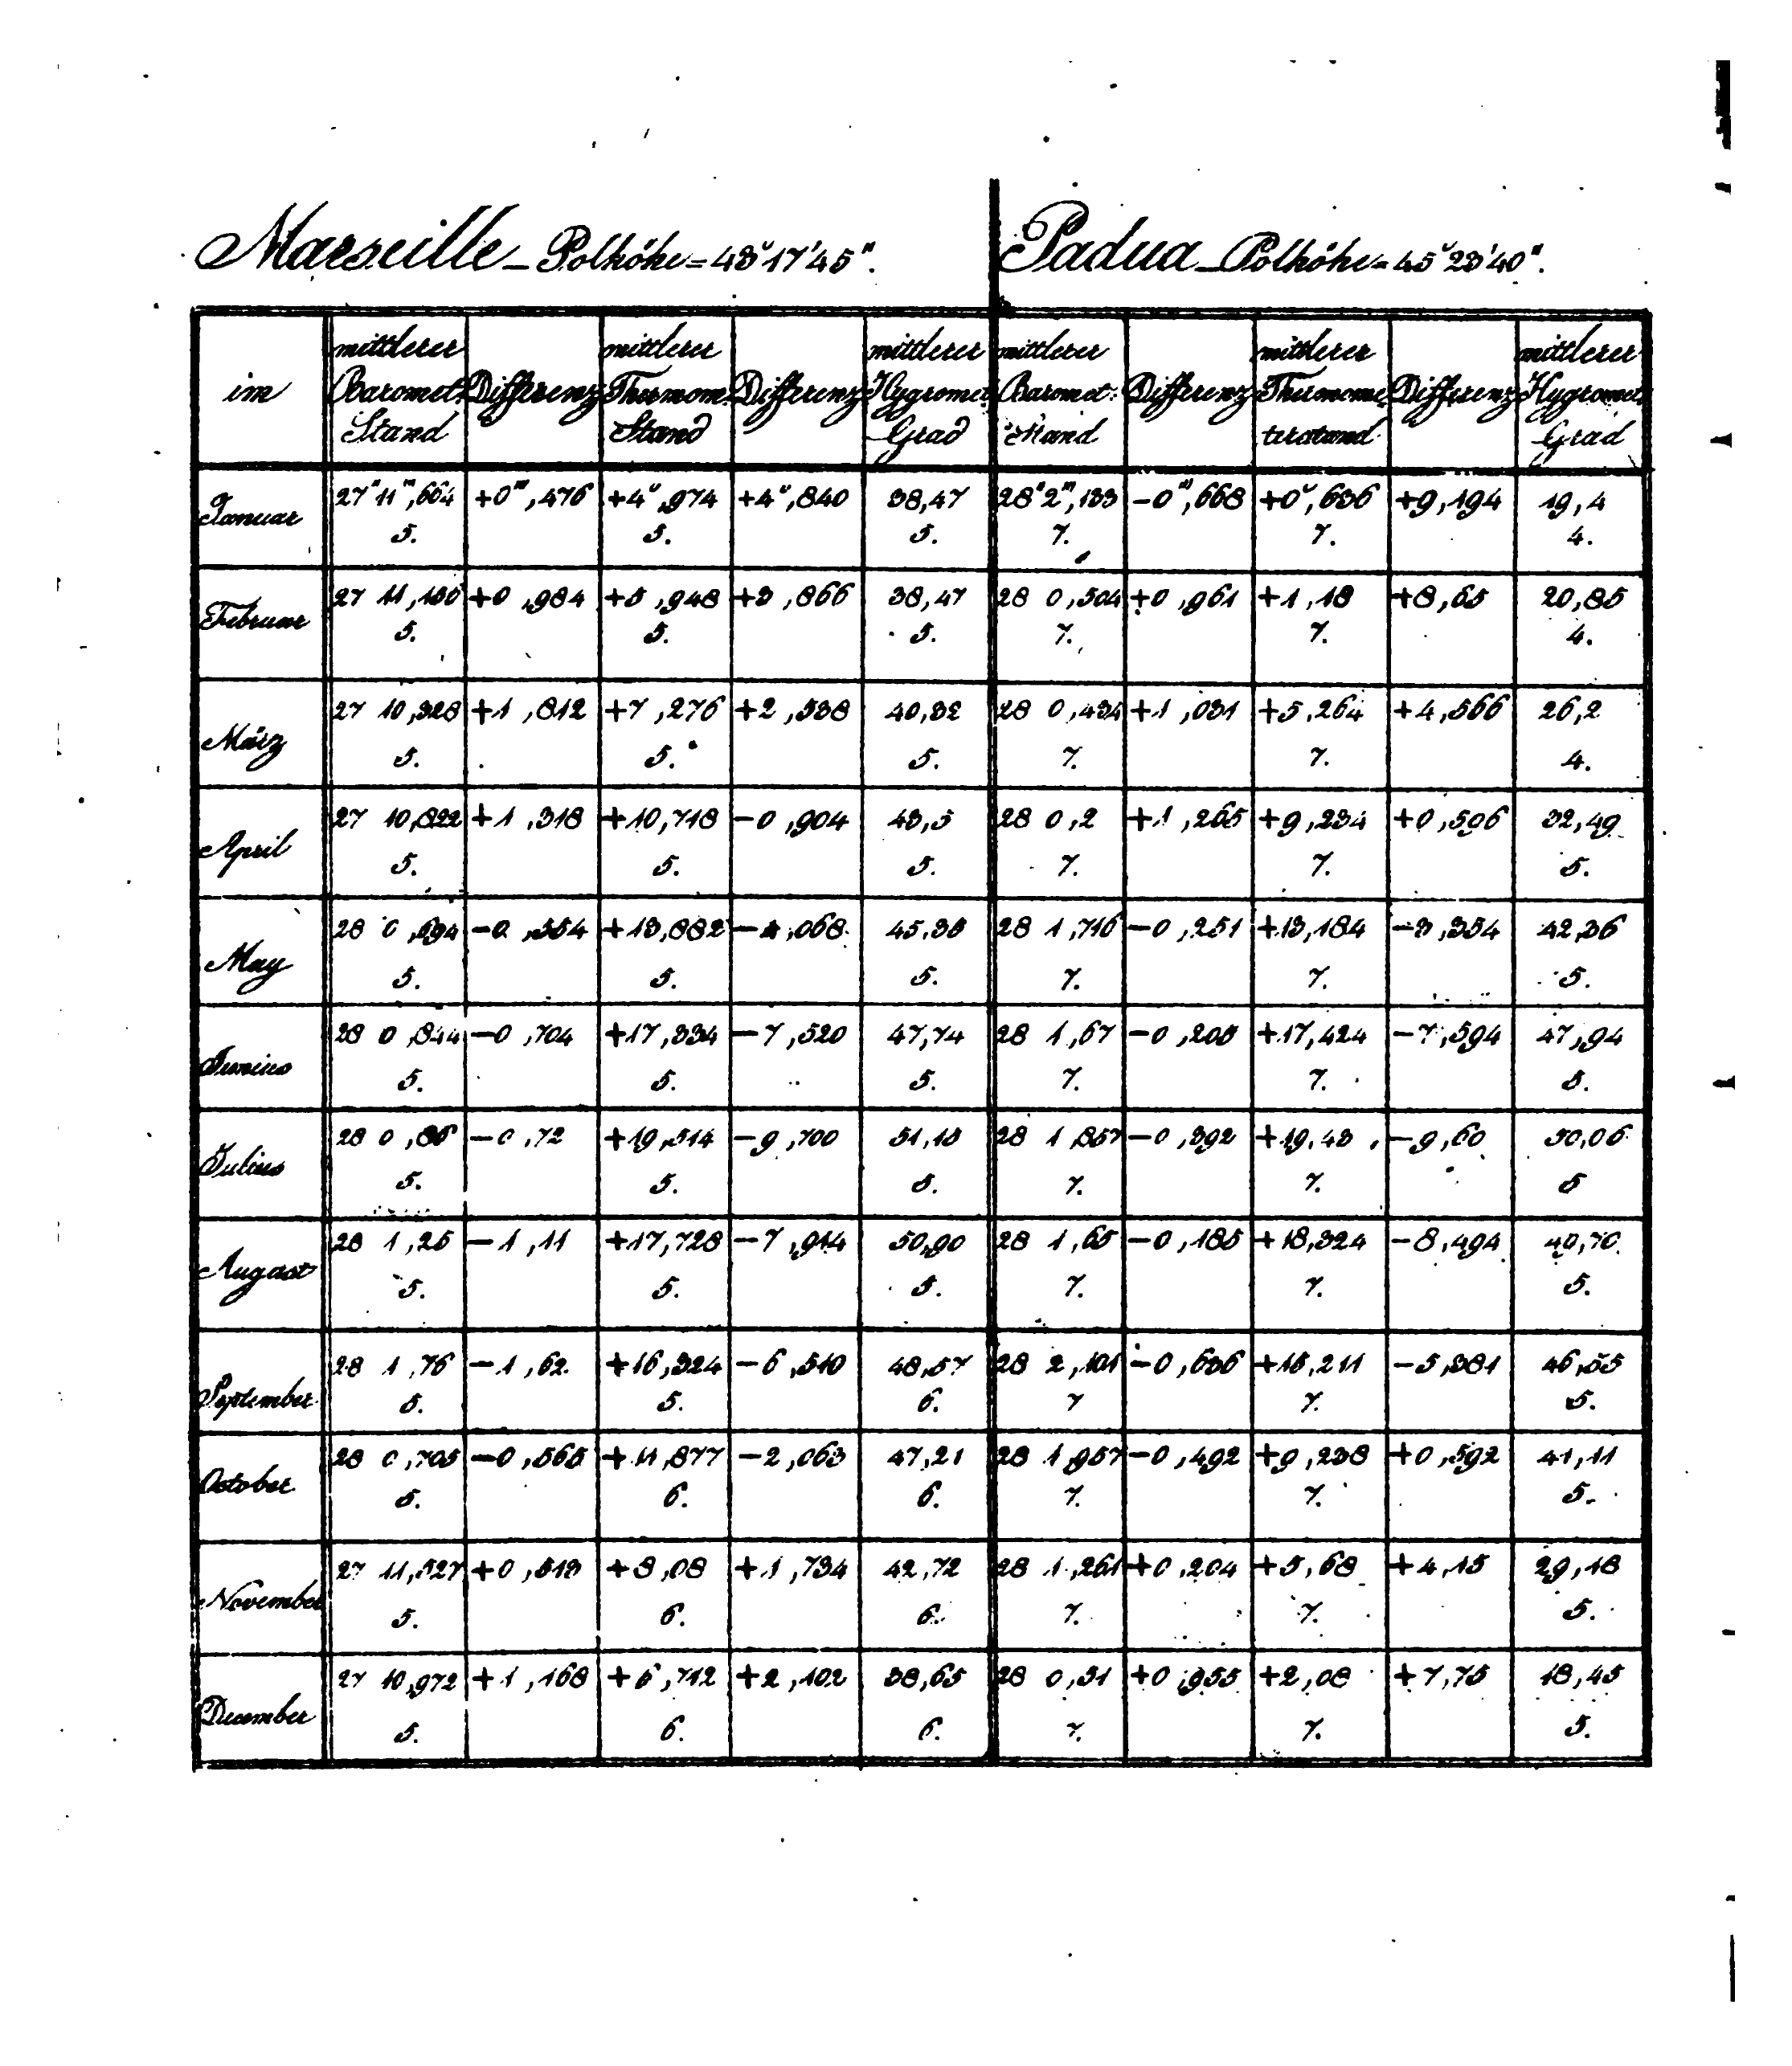 Marseille – Polhöhe = 43° 17' 45". Padua – Polhöhe = 45° 23' 40".
im mittlerer Baromet. Stand Differenz mittlerer Thermom. Stand Differenz mittlerer Hygromet. Grad mittlerer Baromet. Stand Differenz mittlerer Thermome-terstand Differenz mittlerer Hygromet. Grad
Januar 27" 11"',664 +0"',476 +4°,974 +4°,840 38,47 28" 2"',133 -0"',668 +0°,636 +9,194 19,4
5. 5. 5. 7. 7. 4.
Februar 27 11,156 +0,984 +5,948 +3,866 38,47 28 0,504 +0,961 +1,18 +8,65 20,85
5. 5. 5. 7. 7. 4.
März 27 10,328 +1,812 +7,276 +2,538 40,32 28 0,434 +1,031 +5,264 +4,566 26,2
5. 5. 5. 7. 7. 4.
April 27 10,822 +1,318 +10,718 -0,904 43,5 28 0,2 +1,265 +9,234 +0,596 32,49
5. 5. 5. 7. 7. 5.
May 28 0,694 -0,554 +13,882 -4,068 45,35 28 1,716 -0,251 +13,184 -3,354 42,36
5. 5. 5. 7. 7. 5.
Junius 28 0,844 -0,704 +17,334 -7,520 47,74 28 1,67 -0,205 +17,424 -7,594 47,94
5. 5. 5. 7. 7. 5.
Julius 28 0,86 -0,72 +19,514 -9,700 51,15 28 1,857 -0,392 +19,43 -9,60 50,06
5. 5. 5. 7. 7. 5
August 28 1,25 -1,11 +17,728 -7,914 50,90 28 1,65 -0,185 +18,324 -8,494 49,70
5. 5. 5. 7. 7. 5.
September 28 1,76 -1,62 +16,324 -6,510 48,57 28 2,101 -0,636 +15,211 -5,381 46,55
5. 5. 6. 7 7. 5.
October 28 0,705 -0,565 +11,877 -2,063 47,21 28 1,957 -0,492 +9,238 +0,592 41,11
5. 6. 6. 7. 7. 5.
November 27 11,527 +0,513 +8,08 +1,734 42,72 28 1,261 +0,204 +5,68 +4,15 29,18
5. 6. 6. 7. 7. 5.
December 27 10,972 +1,168 +6,712 +2,102 38,65 28 0,51 +0,955 +2,08 +7,75 18,45
5. 6. 6. 7. 7. 5.